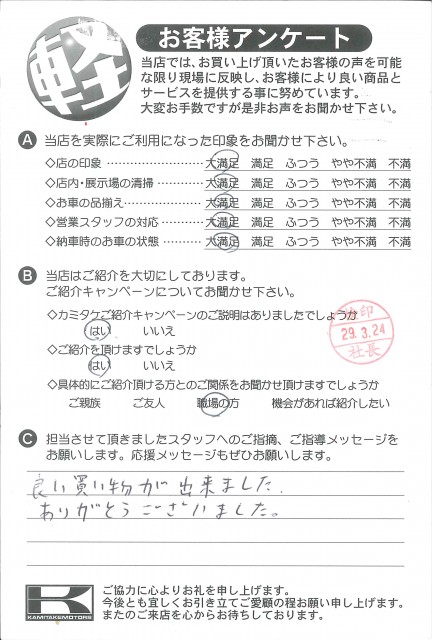 軽
お客様アンケート
当店では、お買い上げ頂いたお客様の声を可能
な限り現場に反映し、お客様により良い商品と
サービスを提供する事に努めています。
大変お手数ですが是非お声をお聞かせ下さい。
A 当店を実際にご利用になった印象をお聞かせ下さい。
◇店の印象 ………………… 大満足 満足 ふつう やや不満 不満
◇店内・展示場の清掃 ………… 大満足 満足 ふつう やや不満 不満
◇お車の品揃え ……………… 大満足 満足 ふつう やや不満 不満
◇営業スタッフの対応 ………… 大満足 満足 ふつう やや不満 不満
◇納車時のお車の状態 ………… 大満足 満足 ふつう やや不満 不満
B 当店はご紹介を大切にしております。
ご紹介キャンペーンについてお聞かせ下さい。
◇カミタケご紹介キャンペーンのご説明はありましたでしょうか
はい いいえ
◇ご紹介を頂けますでしょうか
はい いいえ
◇具体的にご紹介頂ける方とのご関係をお聞かせ頂けますでしょうか
ご親族 ご友人 職場の方 機会があれば紹介したい
印
29.3.24
社長
C 担当させて頂きましたスタッフへのご指摘、ご指導メッセージを
お願いします。応援メッセージもぜひお願いします。
良い買い物が出来ました.
ありがとうございました。
K
KAMITAKEMOTORS
ご協力に心よりお礼を申し上げます。
今後とも宜しくお引き立てご愛顧の程お願い申し上げます。
またのご来店を心からお待ちしております。